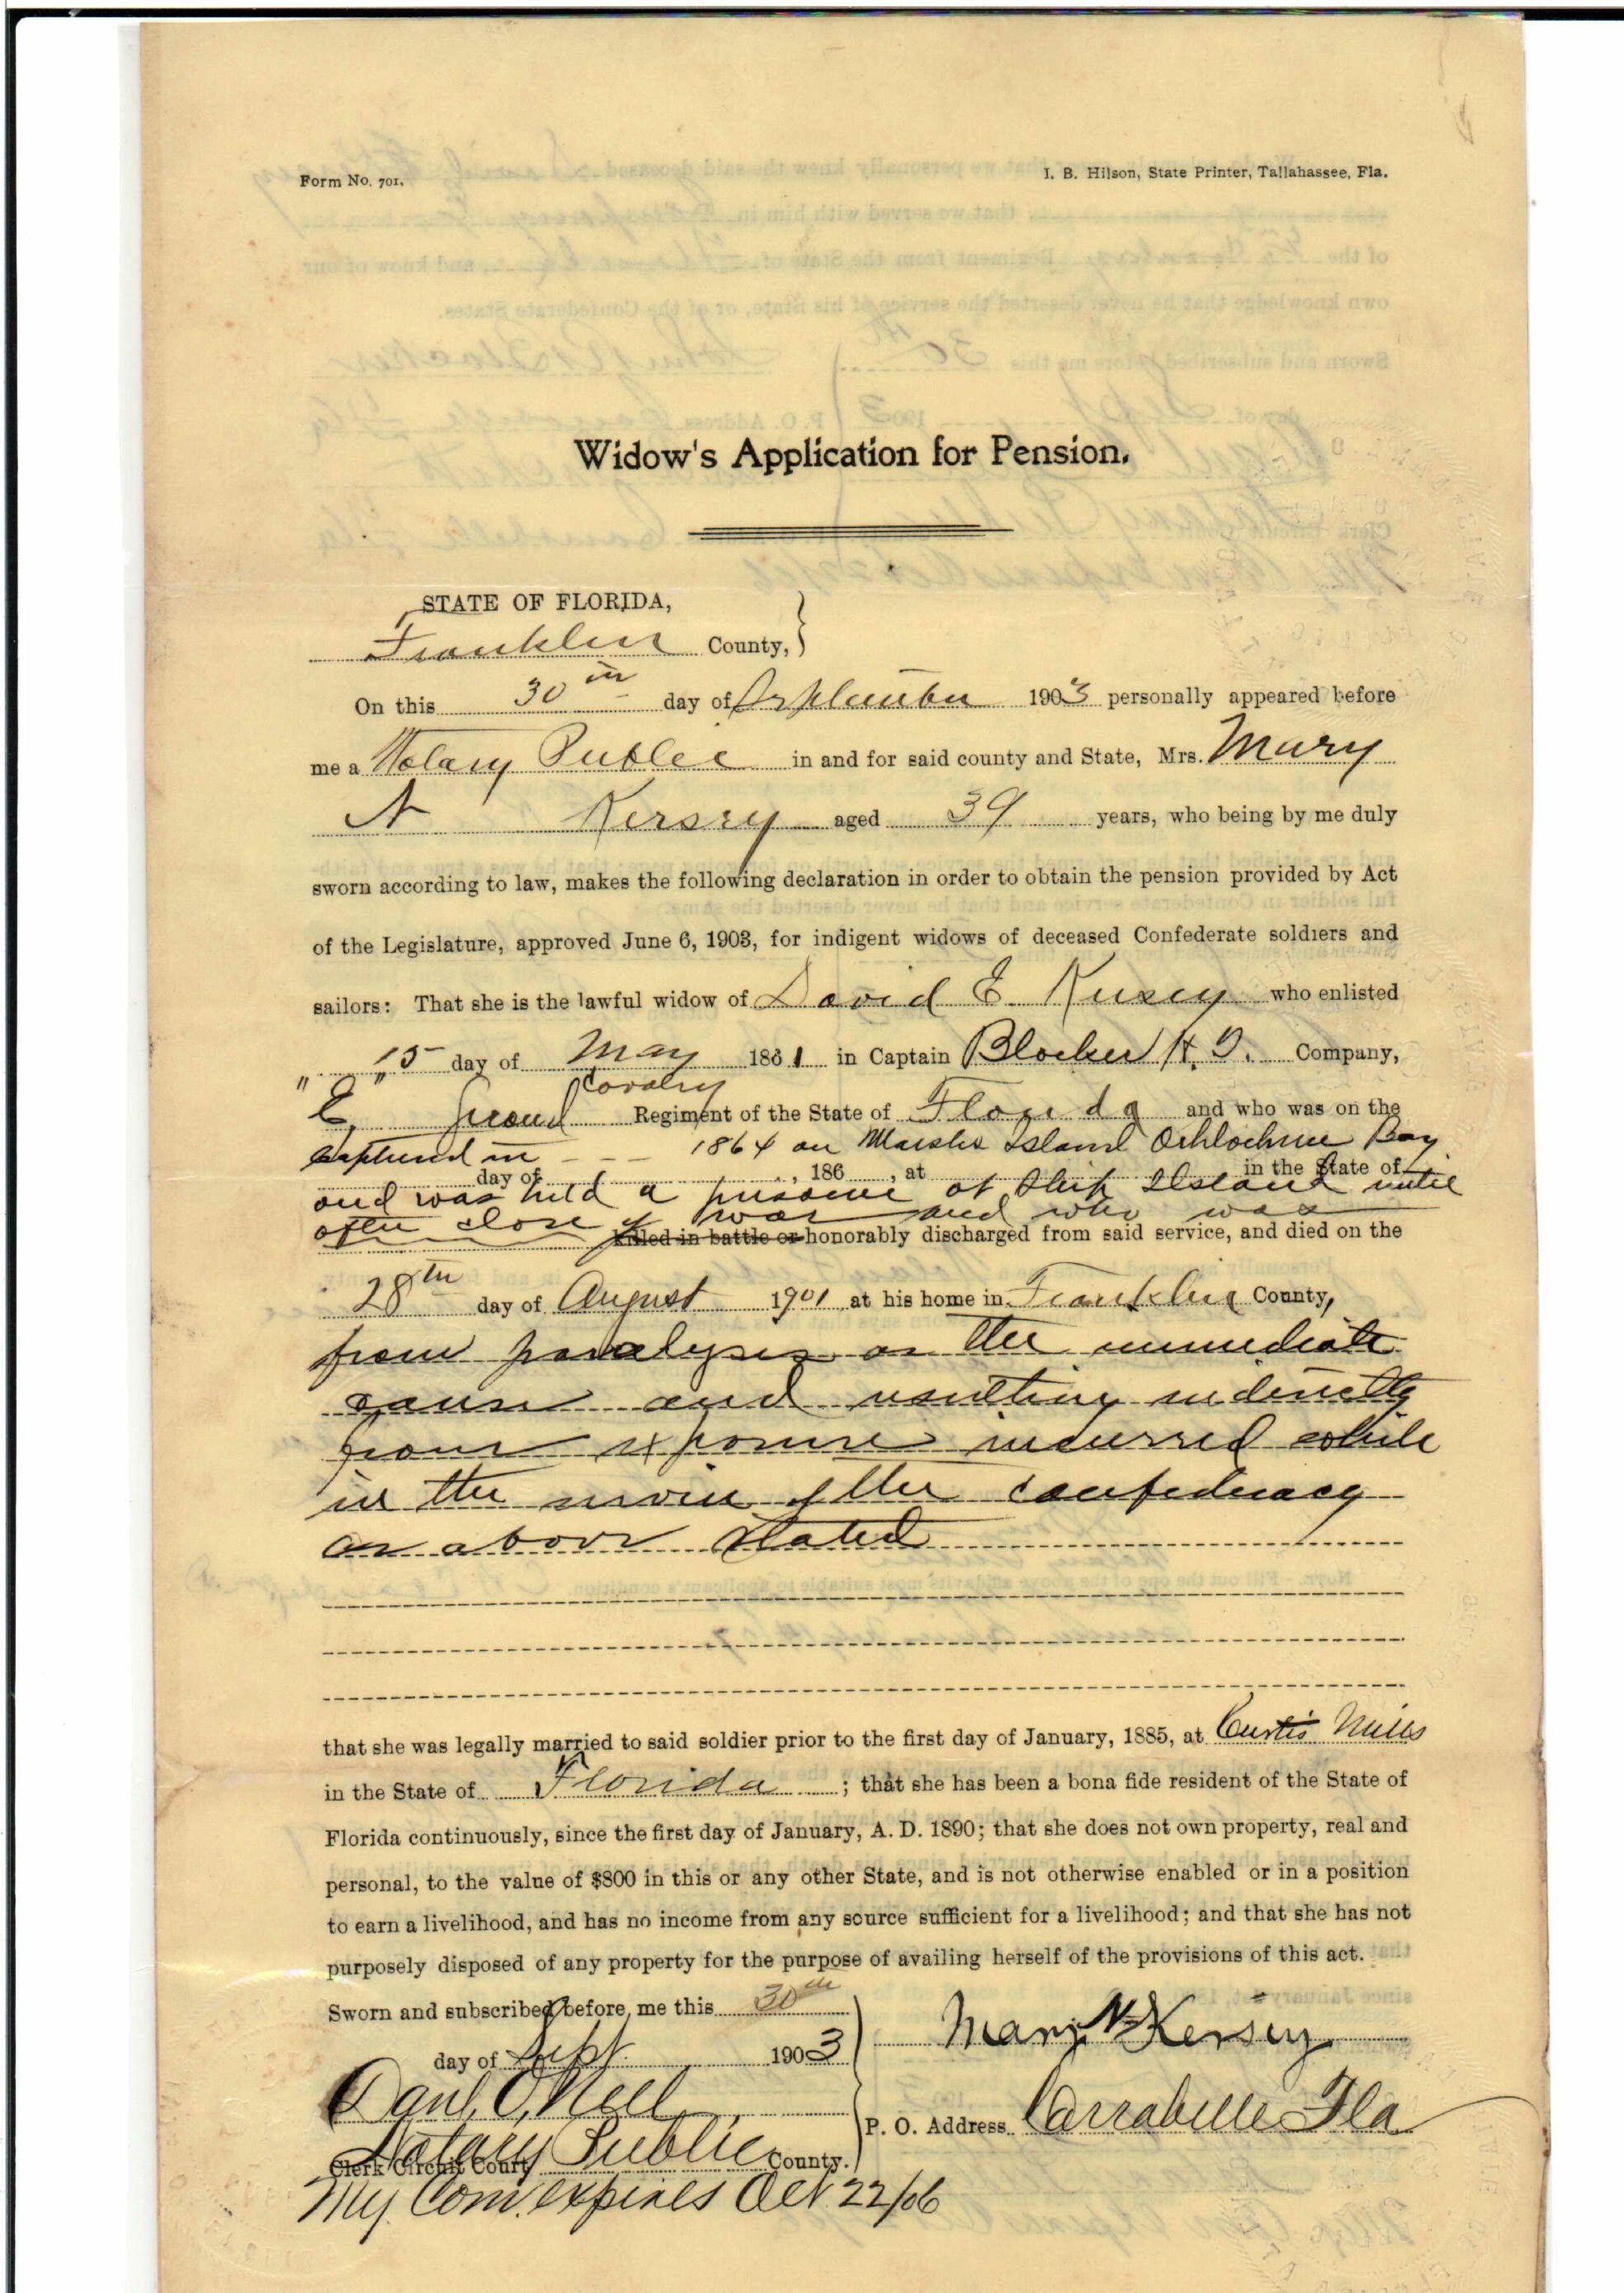 Form No. 701.
I. B. Hilson, State Printer, Tallahassee, Fla.
Widow's Application for Pension.
STATE OF FLORIDA,
Franklin County,
On this 30th day of September 1903 personally appeared before
me a Notary Public in and for said county and State, Mrs. Mary
N Kersey aged 39 years, who being by me duly
sworn according to law, makes the following declaration in order to obtain the pension provided by Act
of the Legislature, approved June 6, 1903, for indigent widows of deceased Confederate soldiers and
sailors: That she is the lawful widow of David E Kersey who enlisted
15 day of May 1861 in Captain Blocker H. T. Company,
Cavalry
"E" Second Regiment of the State of Florida and who was on the
captured in - - - 1864 on Marsh Island Ochlochnee Bay
day of , 186 , at in the State of
and was held a prisoner at Ship Island until
after close of war and who was
killed in battle or honorably discharged from said service, and died on the
28th day of August 1901 at his home in Franklin County,
from paralysis as the immediate
cause and resulting indirectly
from exposure incurred while
in the service of the confederacy
as above stated
that she was legally married to said soldier prior to the first day of January, 1885, at Curtis Mills
in the State of Florida ; that she has been a bona fide resident of the State of
Florida continuously, since the first day of January, A. D. 1890; that she does not own property, real and
personal, to the value of $800 in this or any other State, and is not otherwise enabled or in a position
to earn a livelihood, and has no income from any source sufficient for a livelihood; and that she has not
purposely disposed of any property for the purpose of availing herself of the provisions of this act.
Sworn and subscribed before me this 30th
day of Sept 1903
Mary N Kersey
Danl. O'Neill
P. O. Address Carrabelle Fla
Notary Public
Clerk Circuit Court County.
My Com. expires Oct 22/06